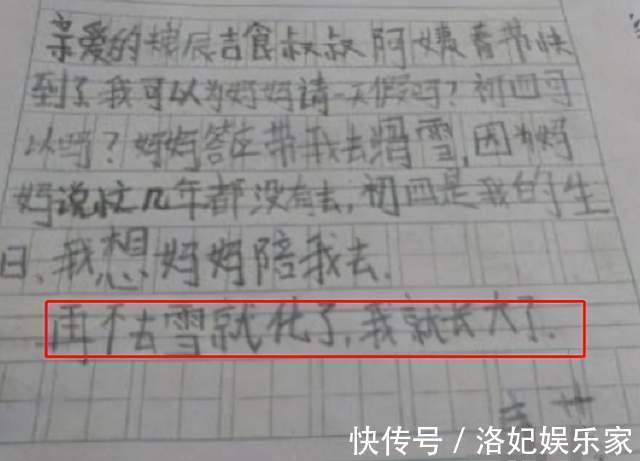 亲爱的粮辰吉食叔叔阿姨春节快
到了我可以为妈妈请一天假吗？初四可
以吗？妈妈答应带我去滑雪，因为妈
妈说忙几年都没有去，初四是我的生
日、我想妈妈陪我去、
再不去雪就化了，我就长大了、
快传号 / 洛妃娱乐家